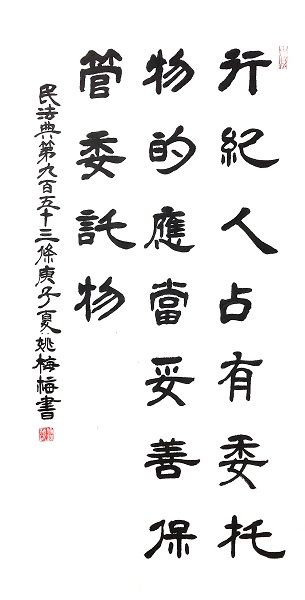 行紀人占有委托
物的應當妥善保
管委託物
民法典第九百五十三條庚子夏姚梅梅書